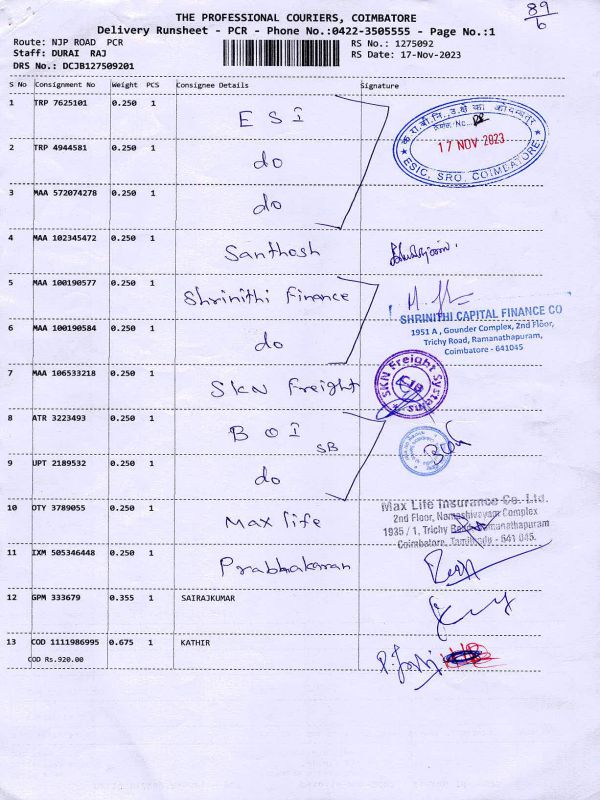 89/6
THE PROFESSIONAL COURIERS, COIMBATORE
Delivery Runsheet - PCR - Phone No.:0422-3505555 - Page No.:1
Route: NJP ROAD PCR
RS No.: 1275092
Staff: DURAI RAJ
RS Date: 17-Nov-2023
DRS No.: DCJB127509201
S No Consignment No Weight PCS Consignee Details Signature
1 TRP 7625101 0.250 1 ESI
क.रा.बी.नि., उ.क्षे.का. कोयम्बत्तूर
17 NOV 2023
ESIC, SRO, COIMBATORE.
2 TRP 4944581 0.250 1 do
3 MAA 572074278 0.250 1 do
4 MAA 102345472 0.250 1 Santhosh
5 MAA 100190577 0.250 1 Shrinithi Finance
SHRINITHI CAPITAL FINANCE CO
1951 A, Gounder Complex, 2nd Floor,
Trichy Road, Ramanathapuram,
Coimbatore - 641045
6 MAA 100190584 0.250 1 do
7 MAA 106533218 0.250 1 SKN Freight
SKN Freight Systems
8 ATR 3223493 0.250 1 BOI SB
9 UPT 2189532 0.250 1 do
10 OTY 3789055 0.250 1 Max life
Max Life Insurance Co. Ltd.
2nd Floor, Namashivayam Complex
1935 / 1, Trichy Road, Ramanathapuram
Coimbatore, Tamilnadu - 641 045.
11 IXM 505346448 0.250 1 Prabhakaran
12 GPM 333679 0.355 1 SAIRAJKUMAR
13 COD 1111986995 0.675 1 KATHIR
COD Rs.920.00